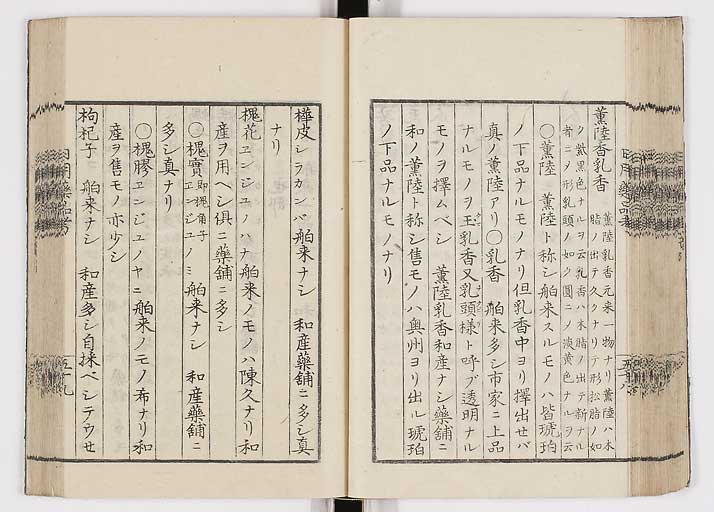 薫陸香乳香　薫陸乳香元来一物ナリ薫陸ハ木
脂ノ出テ久クナリテ形松脂ノ如
ク紫黒色ナルヲ云乳香ハ木脂ノ出テ新ナル
者ニノ形乳頭ノ如ク圓ニノ淡黄色ナルヲ云
〇薫陸　薫陸ト称シ舶来スルモノハ皆琥珀
ノ下品ナルモノナリ但乳香中ヨリ擇出セバ
真ノ薫陸アリ〇乳香　舶来多シ市家ニ上品
ナルモノヲ玉乳香又乳頭様ト呼ブ透明ナル
モノヲ擇ムベシ　薫陸乳香和産ナシ薬舗ニ
和ノ薫陸ト称シ售モノハ奥州ヨリ出ル琥珀
ノ下品ナルモノナリ
樺皮シラカンバ　舶来ナシ　和産藥舗ニ多シ真
ナリ
槐花ヱンジユノハナ　舶来ノモノハ陳久ナリ和
産ヲ用ヘシ倶ニ藥舗ニ多シ
〇槐實即槐角子ヱンジユノミ　舶来ナシ　和産藥舗ニ
多シ真ナリ
〇槐膠ヱンジユノヤニ　舶来ノモノ希ナリ和
産ヲ售モノ亦少シ
枸杞子　舶来ナシ　和産多シ自採ベシテウセ
五十九